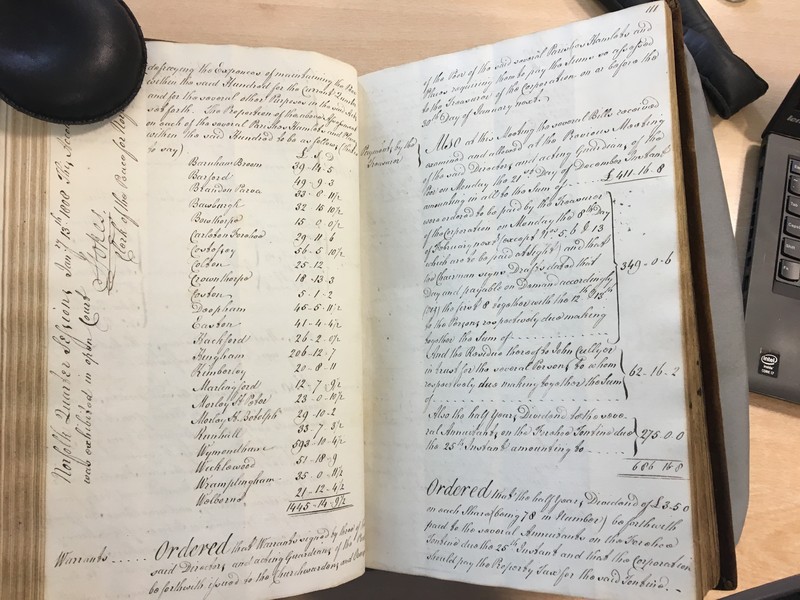 defraying the Expences of maintaining the Poor
within the said Hundred for the Current Quarter
and for the several other Purposes in the said Act
set forth. The Proportion of the above Assessment
on each of the several Parishes Hamlets and Places
within the said Hundred to be as follows (that is
to say)
£ S D
Barnham Broom 39-14-5
Barford 49-9-3
Brandon Parva 33-8-11/2
Bawburgh 32 15 10/2
Bowthorpe 15 0 0/2
Carleton Forehoe 29-11-6
Costessey 56-5-10/2
Colton 25-12
Crownthorpe 18-13-3
Coston 5-1-2
Deopham 45-5-11/2
Easton 41-4-4/2
Hackford 26-2-0/2
Hingham 206-12-7
Kimberley 20-8-11
Marlingford 12-7-9/2
Morley St Peter 23-0-10/2
Morley St Botolph 29-10-2
Runhall 33-7-3/2
Wymondham 593-10-4/2
Wicklewood 51-18-9
Wramplingham 35-0-11/2
Welborne 21-12-4/2
1445-14-9/2
Warrants Ordered that Warrants signed by three of the
said Directors and acting Guardians of the Poor
be forthwith issued to the Churchwardens and
Norfolk Quarter Sessions
was exhibited in open Court
Clerk of the Peace for
111
of the Poor of the said several Parishes Hamlets and
Places requiring them to pay the Sums so assessed
to the Treasurer of the Corporation on or before the
30th day of January next.
Payments by the
Treasurer
Also at this Meeting the several Bills received
examined and allowed at the Previous Meeting
of the said Directors and acting Guardians of the
Poor on Monday the 21st Day of December Instant
amounting in all to the Sum of £411-16-8
were ordered to be paid by the Treasurer
of the Corporation on Monday the 8th Day
of February next (except Nos 5, 6 & 13
which are to be paid at Sight) and that
the Chairman signs Drafts dated that
Day and payable on Demand accordingly
the first 8 together with the 12th & 13th
to the Persons respectively due making
together the Sum of 349-0-6
And the Residue thereof to John Cullyer
in trust for the several Persons to whom
respectively due making together the Sum
of 62-16-2
Also the half Years Dividend to the seve-
ral Annuitants on the Forehoe Tontine due
the 25th Instant amounting to 275-0-0
686 16 8
Ordered that the half Years Dividend of £3-5-0
on each Share (being 78 in Number) be forthwith
paid to the several Annuitants on the Forehoe
Tontine due the 25th Instant and that the Corporation
should pay the Property Tax for the said Tontine.
intel